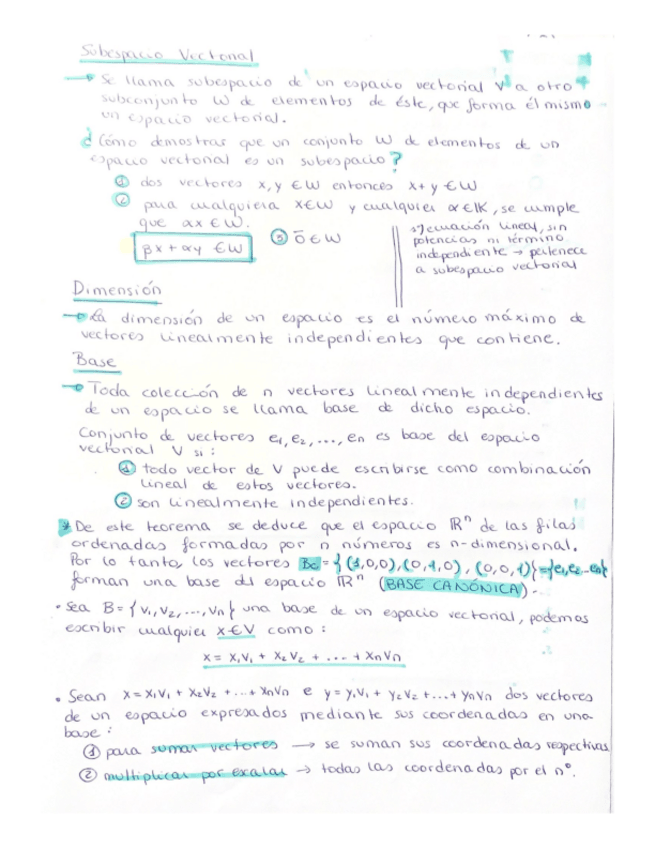 Subespacio Vectorial
Se llama subespacio de un espacio vectorial V a otro
subconjunto W de elementos de éste, que forma él mismo
un espacio vectorial.
¿Cómo demostrar que un conjunto W de elementos de un
espacio vectorial es un subespacio?
① dos vectores x, y ∈ W entonces x+y ∈ W
② para cualquiera x∈W y cualquier α∈K, se cumple
que αx ∈ W.
βx + αy ∈ W
③ 0̄ ∈ W
ecuación lineal, sin
potencias ni término
independiente → pertenece
a subespacio vectorial
Dimensión
La dimensión de un espacio es el número máximo de
vectores linealmente independientes que contiene.
Base
Toda colección de n vectores linealmente independientes
de un espacio se llama base de dicho espacio.
Conjunto de vectores e₁, e₂, ..., en es base del espacio
vectorial V si:
① todo vector de V puede escribirse como combinación
lineal de estos vectores.
② son linealmente independientes.
* De este teorema se deduce que el espacio ℝⁿ de las filas
ordenadas formadas por n números es n-dimensional.
Por lo tanto, los vectores Bc = {(1,0,0), (0,1,0), (0,0,1)} = {e₁, e₂...en}
forman una base del espacio ℝⁿ (BASE CANÓNICA).
• Sea B = {v₁, v₂, ..., vn} una base de un espacio vectorial, podemos
escribir cualquier x∈V como:
x = x₁v₁ + x₂v₂ + ... + xnvn
• Sean x = x₁v₁ + x₂v₂ + ... + xnvn e y = y₁v₁ + y₂v₂ + ... + ynvn dos vectores
de un espacio expresados mediante sus coordenadas en una
base:
① para sumar vectores → se suman sus coordenadas respectivas
② multiplicar por escalar → todas las coordenadas por el nº.